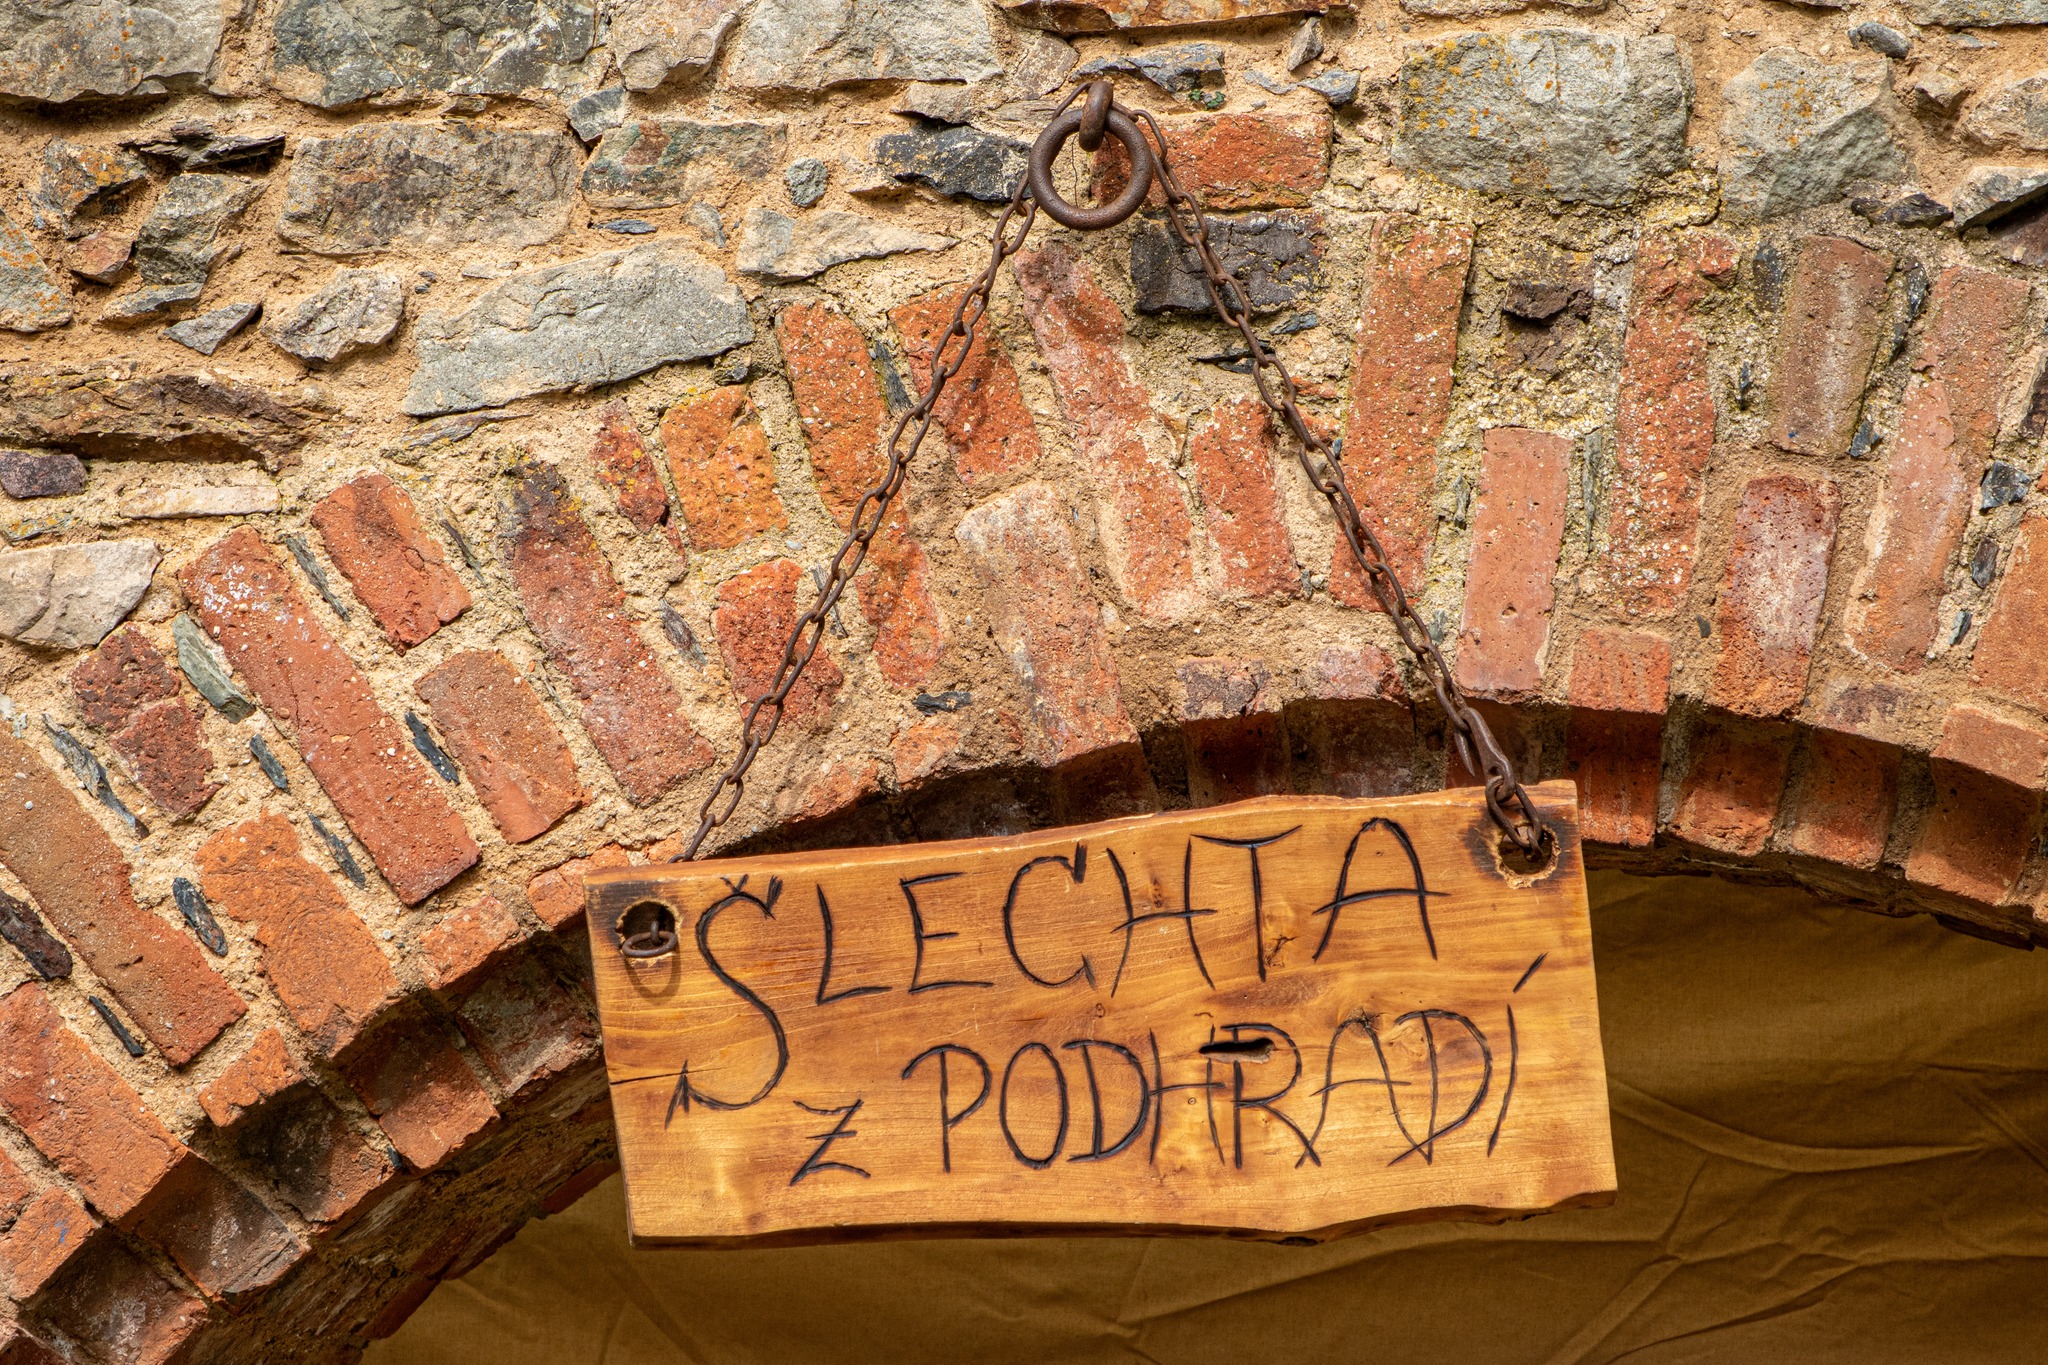 ŠLECHTA
Z PODHRADÍ